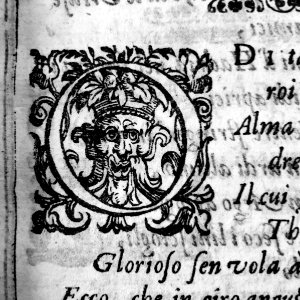 O DI ta
roi
Alma
dre
Il cui
Th
Glorioſo ſen vola,
Ecco, che in giro angu